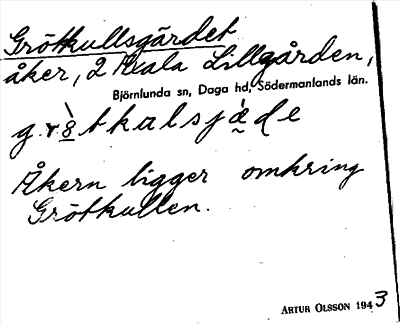 Grötkullsgärdet
åker, 2 Kvala Lillgården,
Björnlunda sn, Daga hd, Södermanlands län.
Åkern ligger omkring
Grötkullen.
ARTUR OLSSON 1943